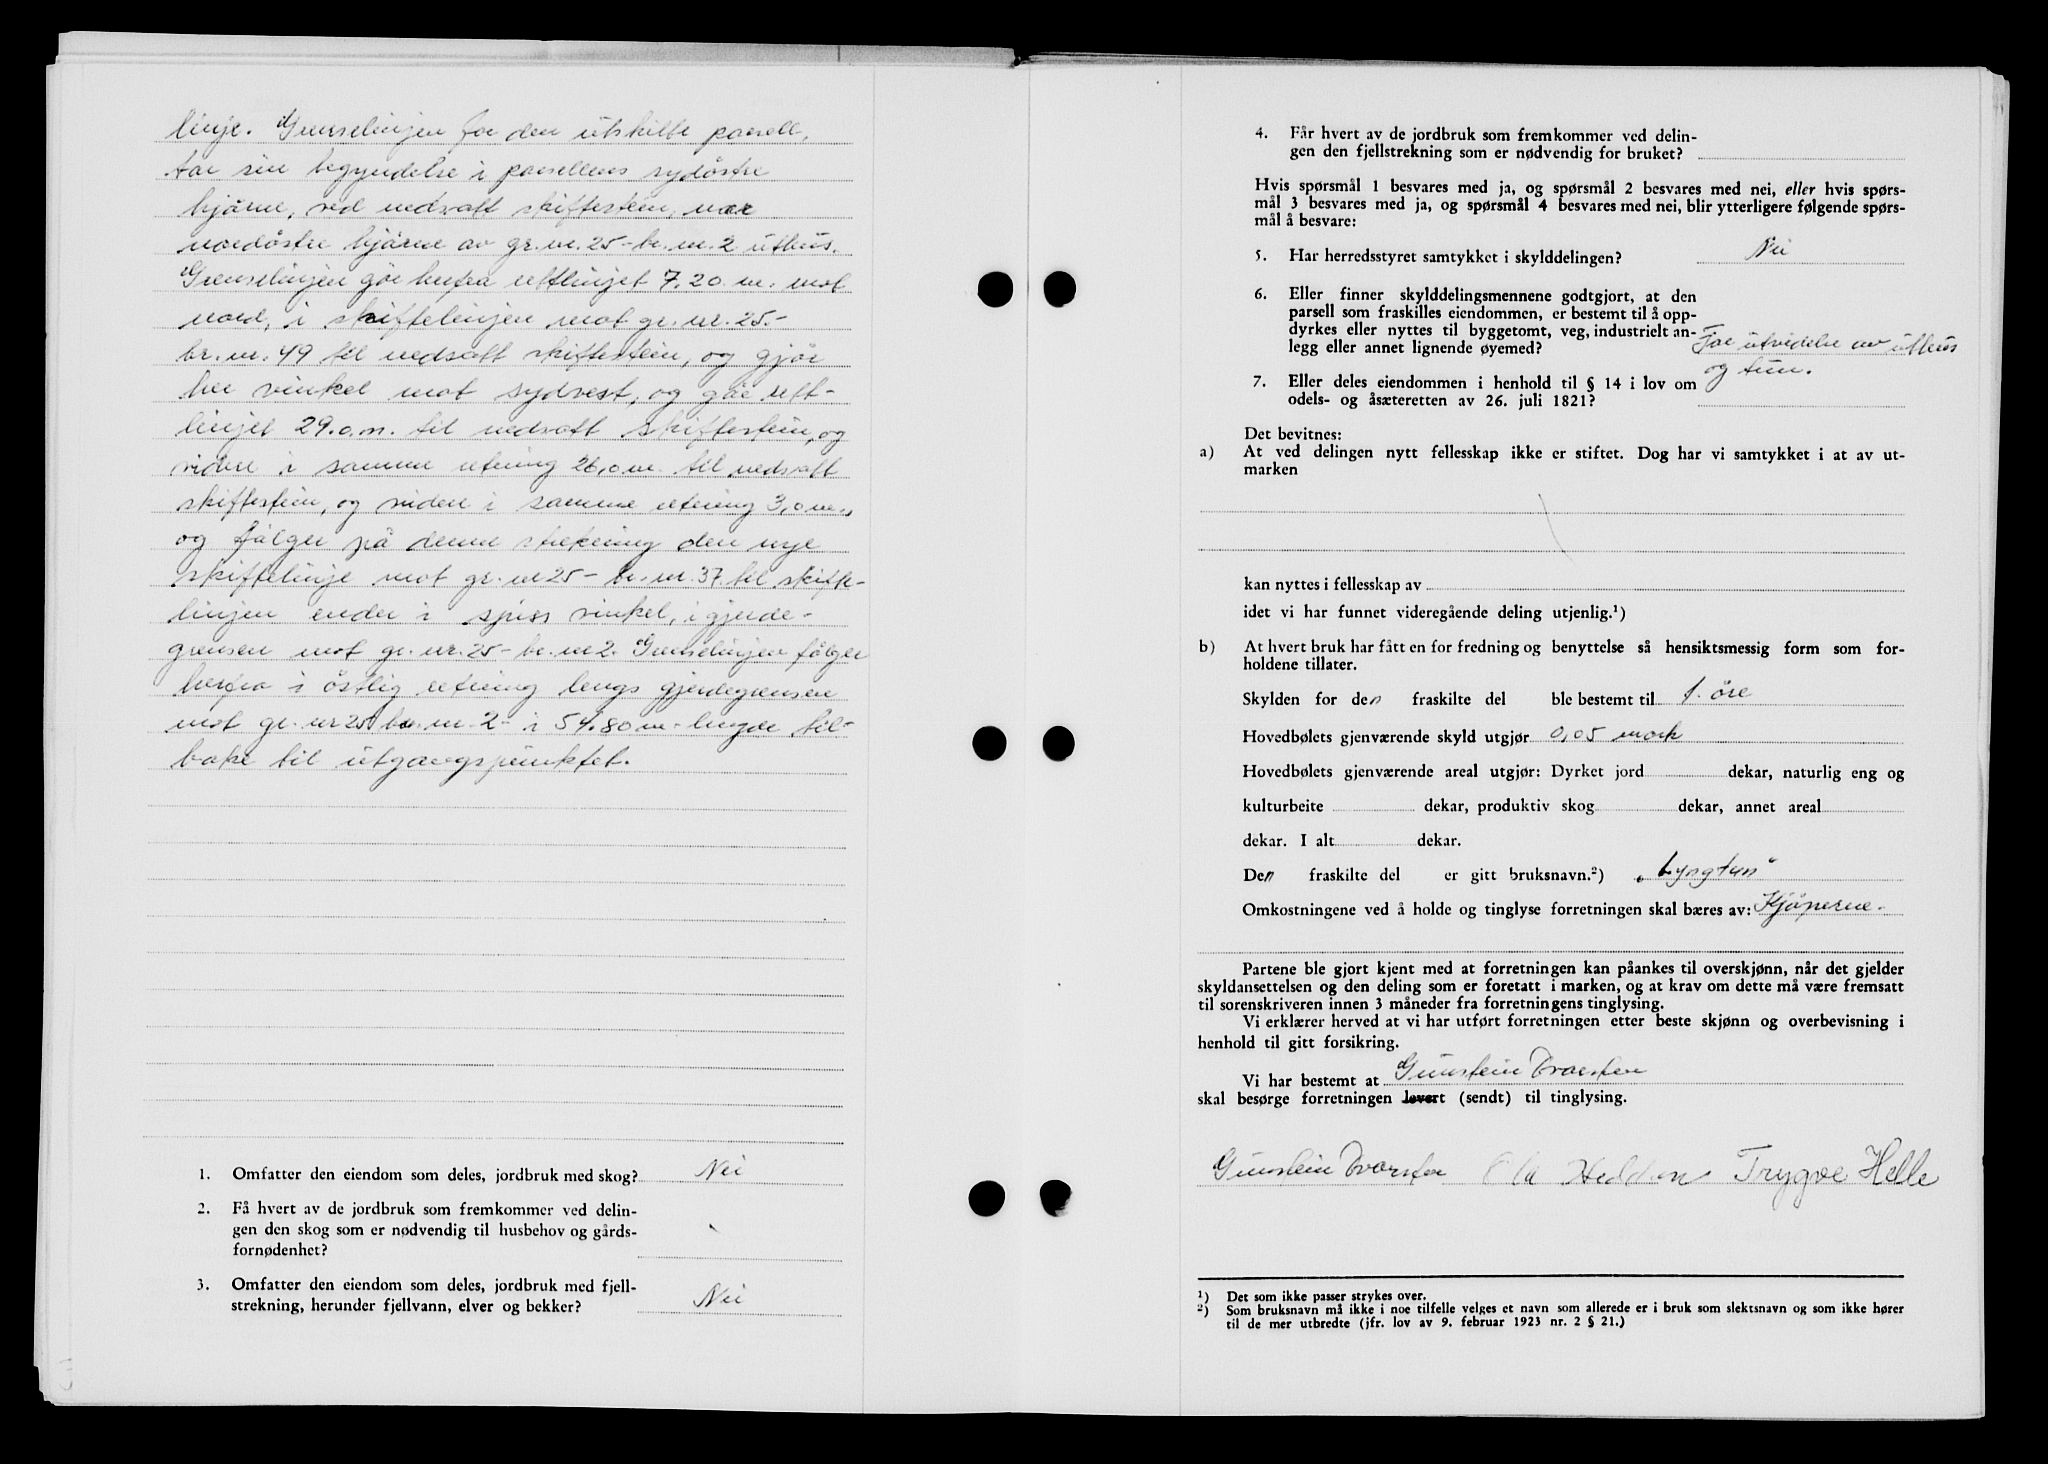 linje. Grenselinjen for den utskilte parsell,
tar sin begyndelse i parsellens sydöstre
hjörne, ved nedsatt skiftestein, nær
nordöstre hjörne av gr. nr. 25 - br. nr. 2 uthus.
Grenselinjen går herfra rettlinjet 7.20 m. mot
nord, i skiftelinjen mot gr. nr. 25.-
br. nr. 49 til nedsatt skiftestein, og gjör
her vinkel mot sydvest, og går rett-
linjet 29.0 m. til nedsatt skiftestein, og
videre i samme retning 26,0 m. til nedsatt
skiftestein, og videre i samme retning 3,0 m.,
og fölger på denne strekning den nye
skiftelinje mot gr. nr 25 - br. nr. 37. til skifte-
linjen ender i spiss vinkel, i gjerde-
grensen mot gr. nr. 25 - br. nr 2. Grenselinjen fölger
herfra i östlig retning lengs gjerdegrensen
mot gr. nr 25 br. nr. 2 - i 54.80 m. lengde til-
bake til utgangspunktet.
1. Omfatter den eiendom som deles, jordbruk med skog? Nei
2. Få hvert av de jordbruk som fremkommer ved delin-
gen den skog som er nødvendig til husbehov og gårds-
fornødenhet?
3. Omfatter den eiendom som deles, jordbruk med fjell-
strekning, herunder fjellvann, elver og bekker? Nei
4. Får hvert av de jordbruk som fremkommer ved delin-
gen den fjellstrekning som er nødvendig for bruket?
Hvis spørsmål 1 besvares med ja, og spørsmål 2 besvares med nei, eller hvis spørs-
mål 3 besvares med ja, og spørsmål 4 besvares med nei, blir ytterligere følgende spørs-
mål å besvare:
5. Har herredsstyret samtykket i skylddelingen? Nei
6. Eller finner skylddelingsmennene godtgjort, at den
parsell som fraskilles eiendommen, er bestemt til å opp-
dyrkes eller nyttes til byggetomt, veg, industrielt an-
legg eller annet lignende øyemed? For utvidelse av uthus
og tun.
7. Eller deles eiendommen i henhold til § 14 i lov om
odels- og åsæteretten av 26. juli 1821?
Det bevitnes:
a) At ved delingen nytt fellesskap ikke er stiftet. Dog har vi samtykket i at av ut-
marken
kan nyttes i fellesskap av
idet vi har funnet videregående deling utjenlig.¹)
b) At hvert bruk har fått en for fredning og benyttelse så hensiktsmessig form som for-
holdene tillater.
Skylden for den fraskilte del ble bestemt til 1. öre
Hovedbølets gjenværende skyld utgjør 0,05 mark
Hovedbølets gjenværende areal utgjør: Dyrket jord dekar, naturlig eng og
kulturbeite dekar, produktiv skog dekar, annet areal
dekar. I alt dekar.
Den fraskilte del er gitt bruksnavn.²) „Lyngtun"
Omkostningene ved å holde og tinglyse forretningen skal bæres av: Kjöperne.
Partene ble gjort kjent med at forretningen kan påankes til overskjønn, når det gjelder
skyldansettelsen og den deling som er foretatt i marken, og at krav om dette må være fremsatt
til sorenskriveren innen 3 måneder fra forretningens tinglysing.
Vi erklærer herved at vi har utført forretningen etter beste skjønn og overbevisning i
henhold til gitt forsikring.
Vi har bestemt at Gunstein Tvarsten
skal besørge forretningen levert (sendt) til tinglysing.
Gunstein Ola Trygve Helle
¹) Det som ikke passer strykes over.
²) Som bruksnavn må ikke i noe tilfelle velges et navn som allerede er i bruk som slektsnavn og som ikke hører
til de mer utbredte (jfr. lov av 9. februar 1923 nr. 2 § 21.)